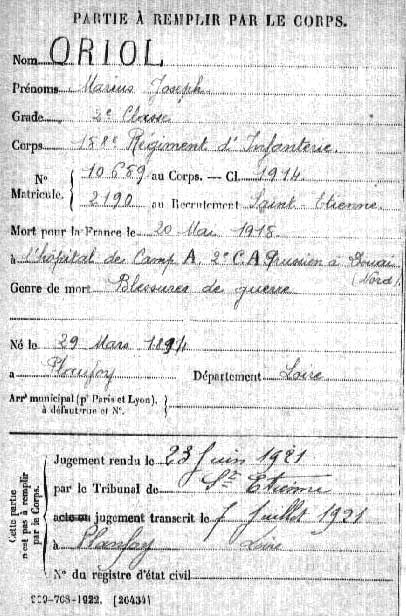 PARTIE À REMPLIR PAR LE CORPS.
Nom ORIOL
Prénoms Marius Joseph
Grade 2e Classe
Corps 158e Régiment d'Infanterie.
N° Matricule. 10689 au Corps. — Cl. 1914
2190 au Recrutement Saint Etienne
Mort pour la France le 20 Mai 1918
à l'hôpital de Camp A. 2e C.A Prussien à Douai
(Nord).
Genre de mort Blessures de guerre
Né le 29 Mars 1894
a Planfoy Département Loire
Arrt municipal (pr Paris et Lyon),
à défaut rue et N°.
Cette partie n'est pas à remplir par le Corps.
Jugement rendu le 23 Juin 1921
par le Tribunal de St Etienne
acte ou jugement transcrit le 7 Juillet 1921
à Planfoy Loire
N° du registre d'état civil
-708-1922. [26434]